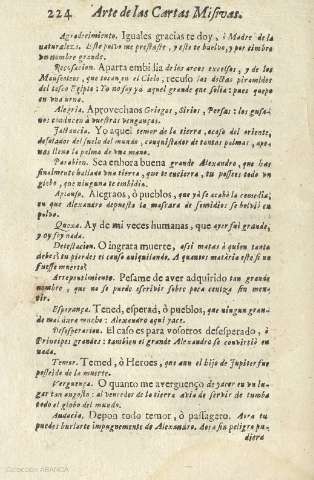 224 Arte de las Cartas Misivas.
Agradecimiento. Iguales gracias te doy, ò Madre de la
naturaleza. Este polvo me prestaste, y este te buelvo, y por simbro
un nombre grande.
Recusacion. Aparta embilia de los arcos excelsos, y de los
Mauseolos, que tocan en el Cielo, reculo las doctas piramides
del tosco Egipto: Yo no soy aquel grande que solia: pues quepo
en una urna.
Alegria. Aprovechaos Griegos, Sirios, Persas: los gusa-
nos: conducen à vuestras venganças.
Jactancia. Yo aquel temor de la tierra, acaso del oriente,
desolador del suelo del mundo, conquistador de tantas palmas, ape-
nas lleno la palma de una mano.
Parabien. Sea enhora buena grande Alexandro, que has
finalmente hallado una tierra, que te cubierra, tu posees todo un
globo, que ninguno te embidia.
Aplauso. Alegraos, ò pueblos, que ya se acabò la comedia,
en que Alexandro depuesta la mascara de semidios se bolviò en
polvo.
Quexa. Ay de mi vezes humanas, que ayer fui grande,
y oy soy nada.
Detestacion. O ingrata muerte, assi matas à quien tanta
debes! tu pierdes el causo aniquilando. A quantos materia este si no
fuesse muerto?
Arrepentimiento. Pesame de aver adquirido tan grande
nombre, que no se puede escrivir sobre poca ceniza sin men-
tir.
Esperança. Tened, esperad, ò pueblos, que ningun gran-
de mal dura mucho: Alexandro aqui yace.
Desesperacion. El caso es para vosotros desesperado, ò
Principes grandes: tambien el grande Alexandro se convirtiò en
nada.
Temor. Temed, ò Heroes, que aun el hijo de Jupiter fue
posseido de la muerte.
Verguença. O quanto me averguenço de yacer en un lu-
gar tan angosto: al vencedor de la tierra avia de servir de tumba
todo el globo del mundo.
Audacia. Depon todo temor, ò passagero. Aora tu
puedes burlarte impugnemente de Alexandro. Aora sin peligro pu-
diera
Colección ABANCA